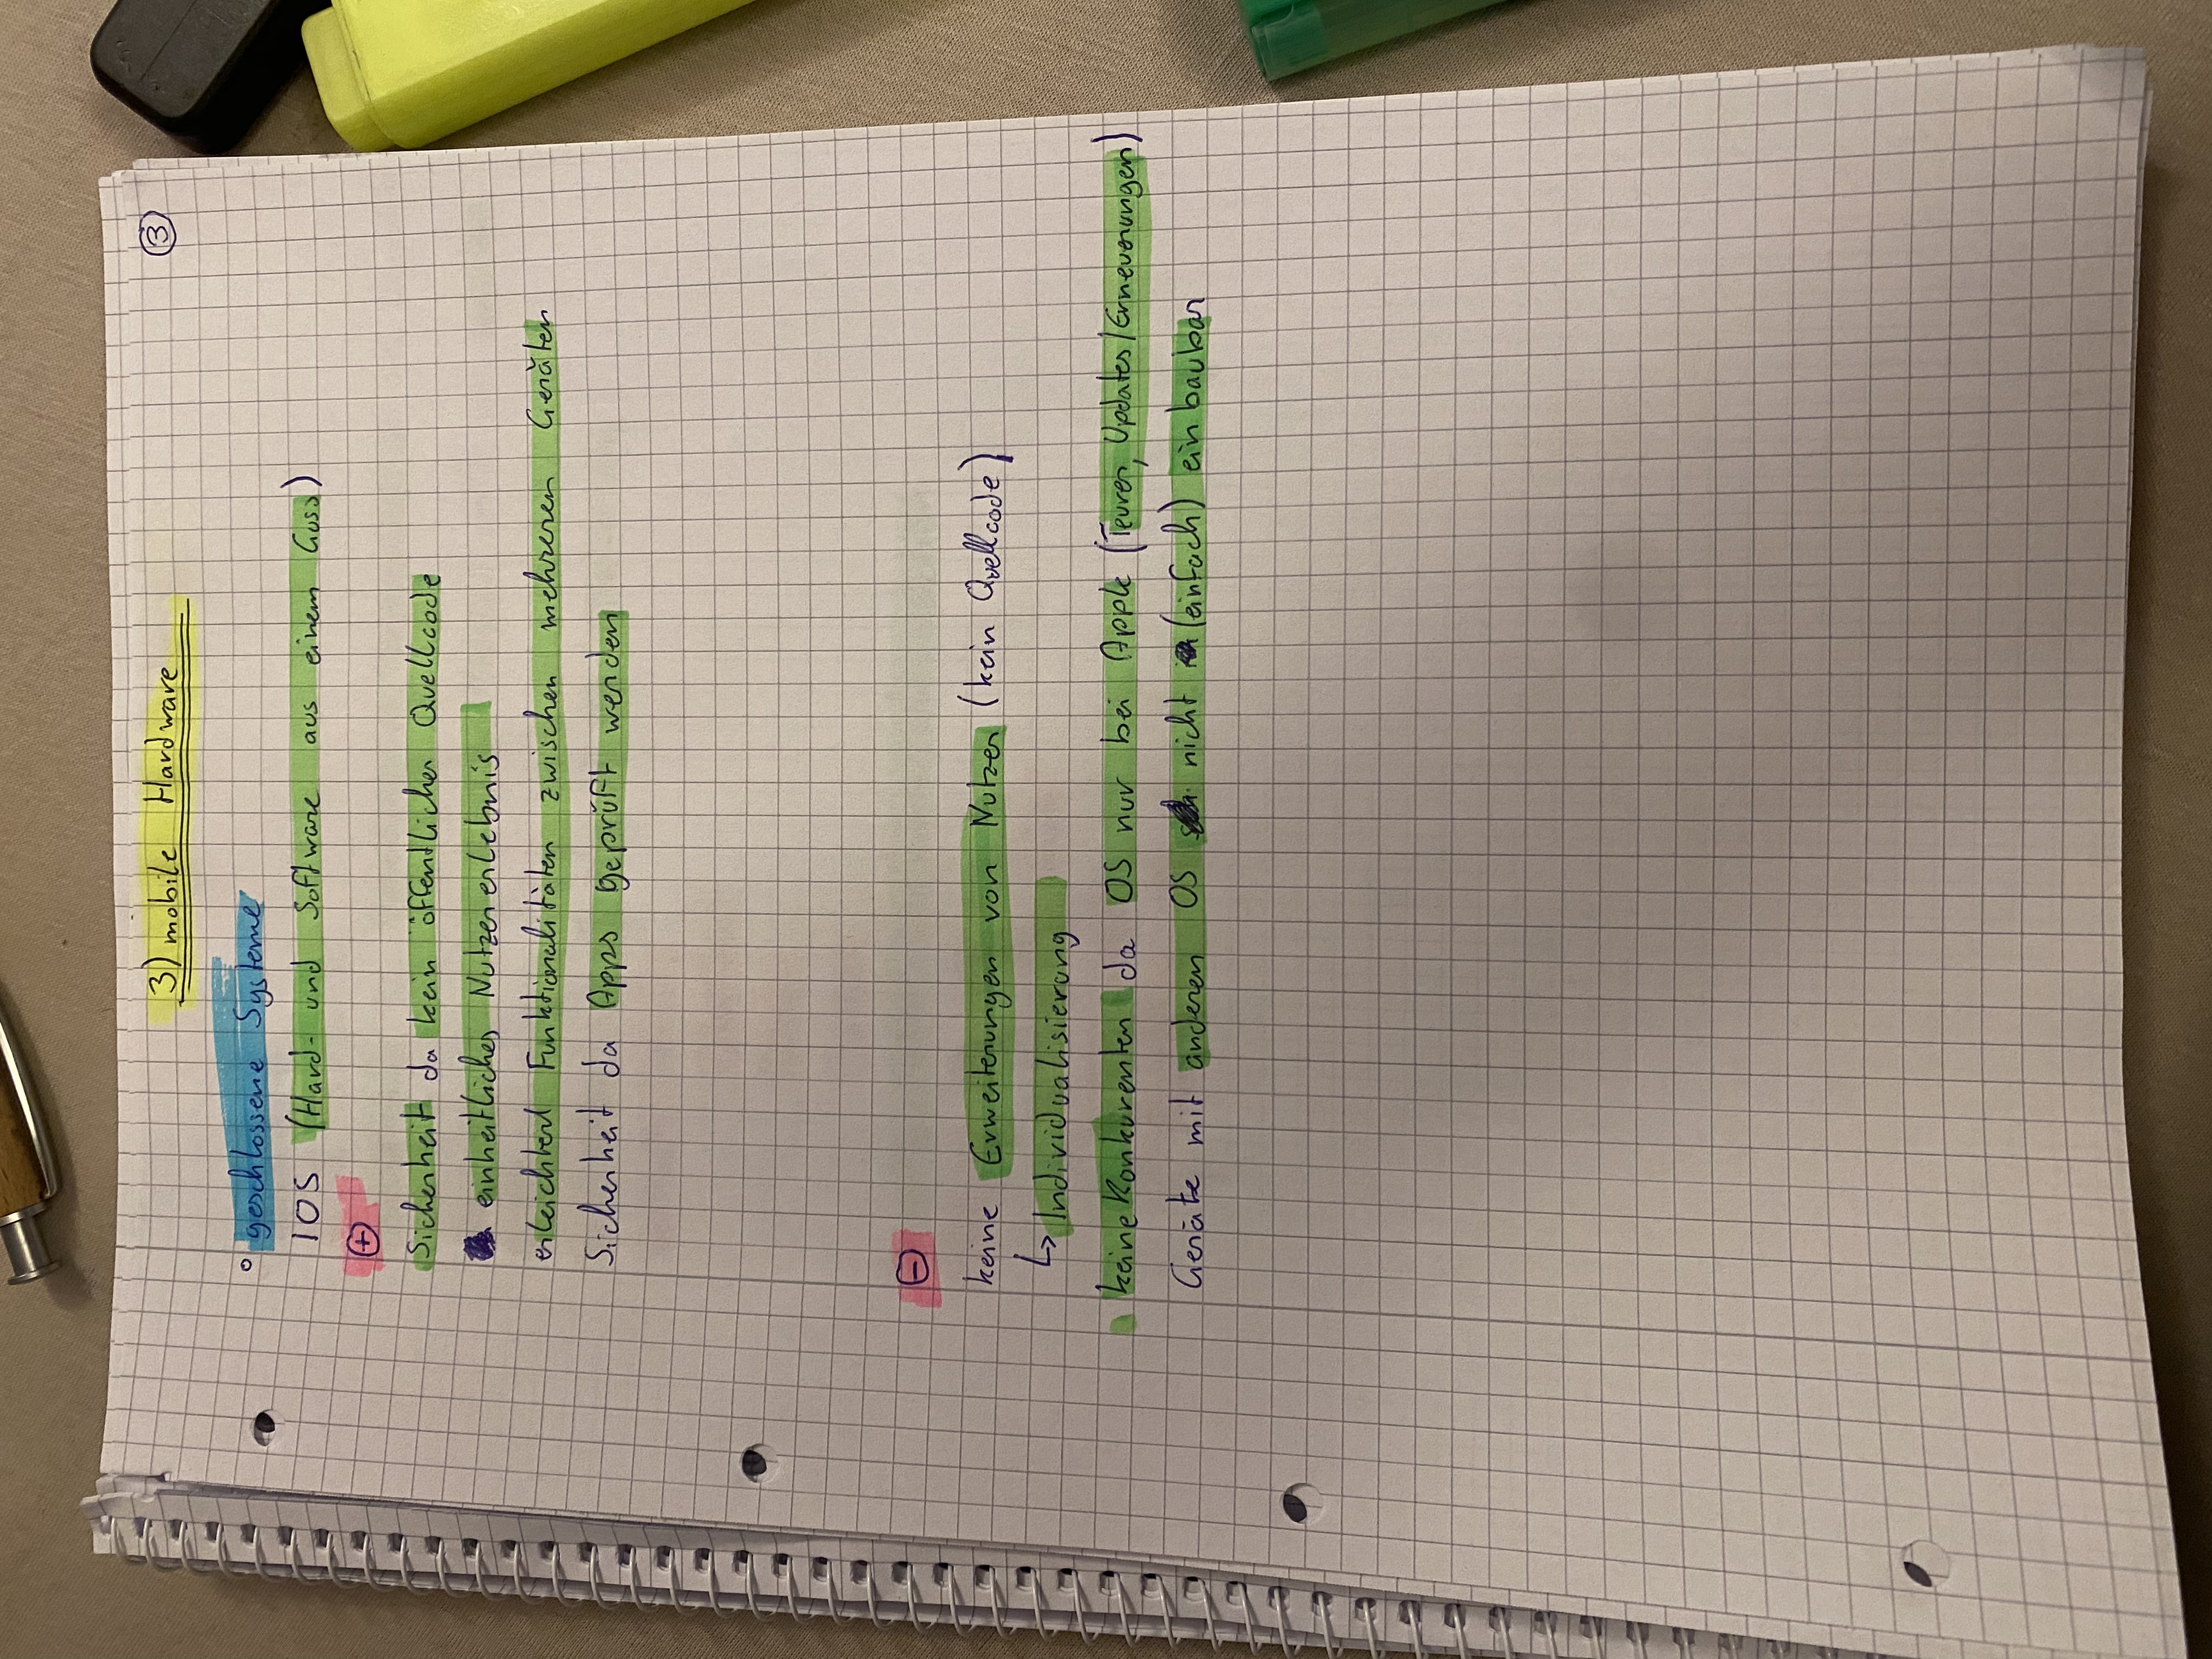 3) mobile Hardware
③
° geschlossene Systeme
IOS (Hard- und Software aus einem Guss)
⊕
Sicherheit da kein öffentlicher Quellcode
einheitliches Nutzererlebnis
erleichtert Funktionalitäten zwischen mehreren Geräten
Sicherheit da Apps geprüft werden
⊖
keine Erweiterungen von Nutzer (kein Quellcode)
↳ Individualisierung
keine Konkurenten da OS nur bei Apple (Teurer, Updates/Erneuerungen)
Geräte mit anderen OS nicht (einfach) einbaubar